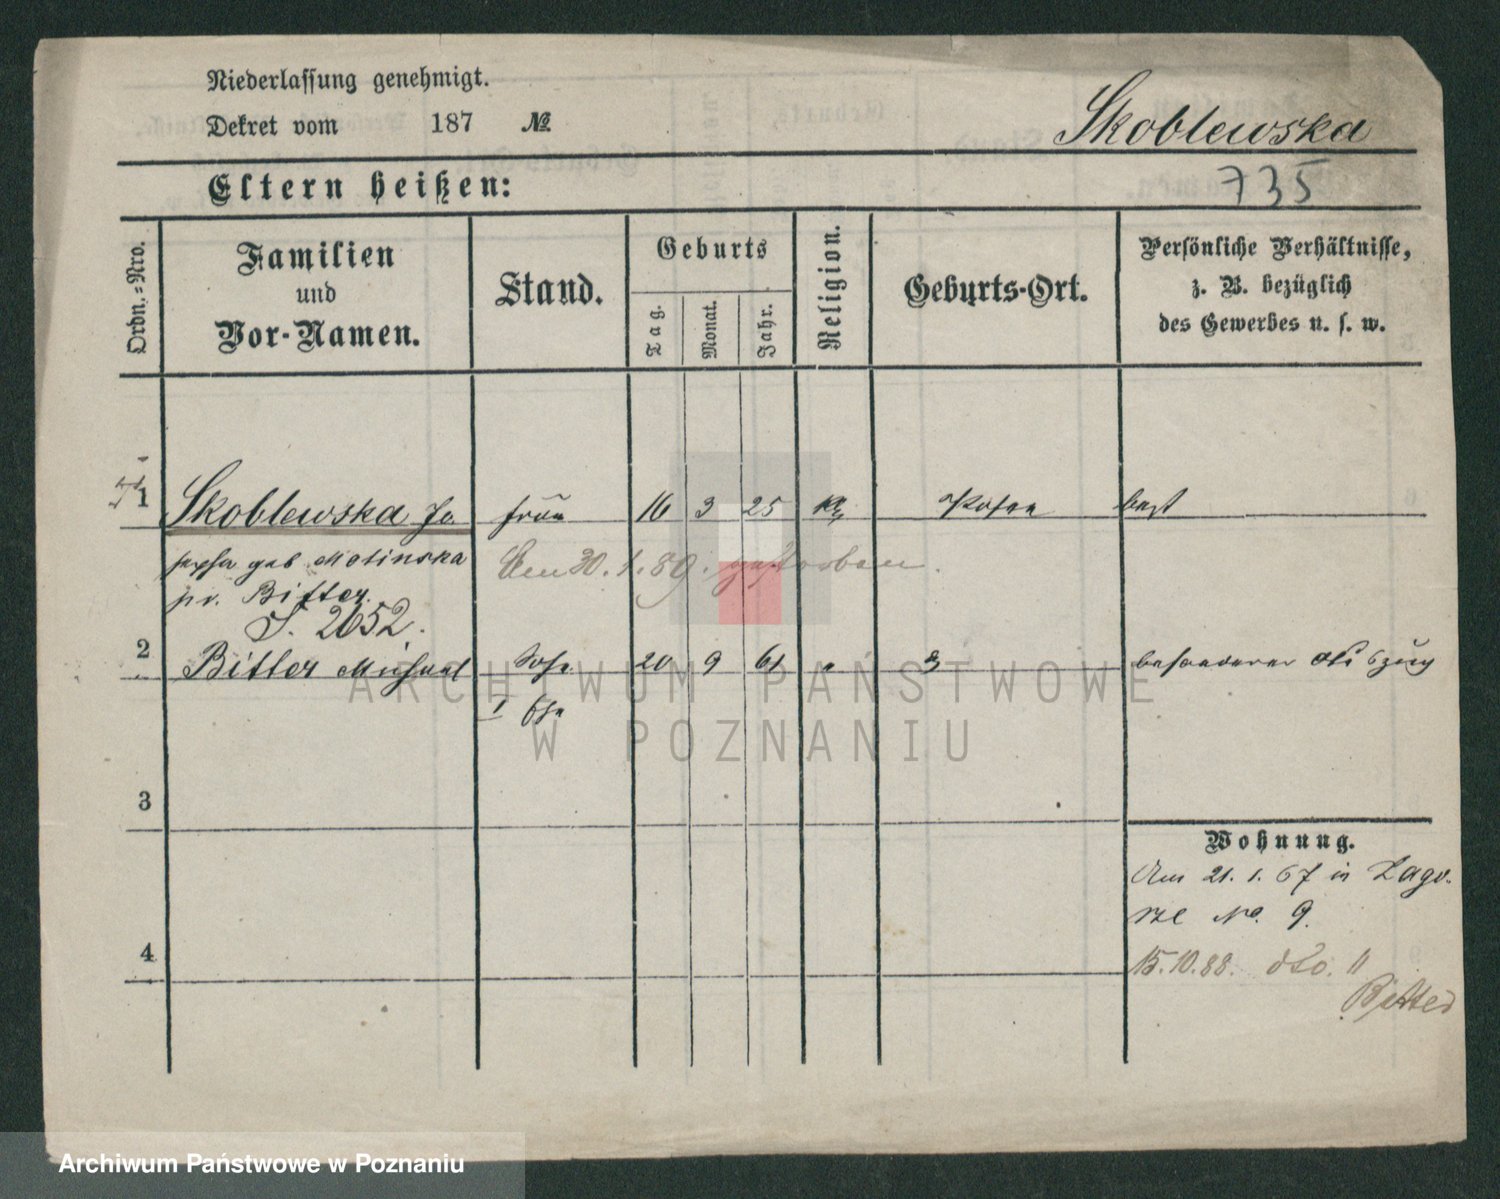 Niederlassung genehmigt.
Dekret vom 187 №
Skoblewska
Eltern heißen:
735
Ordn.-Nro.
Familien
und
Vor-Namen.
Stand.
Geburts
Tag.
Monat.
Jahr.
Religion.
Geburts-Ort.
Persönliche Verhältnisse,
z. B. bezüglich
des Gewerbes u. s. w.
1 Skoblewska Jo frau 16 3 25 Posen
sepha geb
Am 30. 1. 89. gestorben.
pr. Bitter
S. 2652.
2 Bitter Michael Sohn 20 9 61 " besonderer
I Ehe
3
Wohnung.
Am 21. 1. 67 in Zago.
rze No. 9.
4
15.10.88. dto. "
Bitter
ARCHIWUM PAŃSTWOWE
W POZNANIU
Archiwum Państwowe w Poznaniu